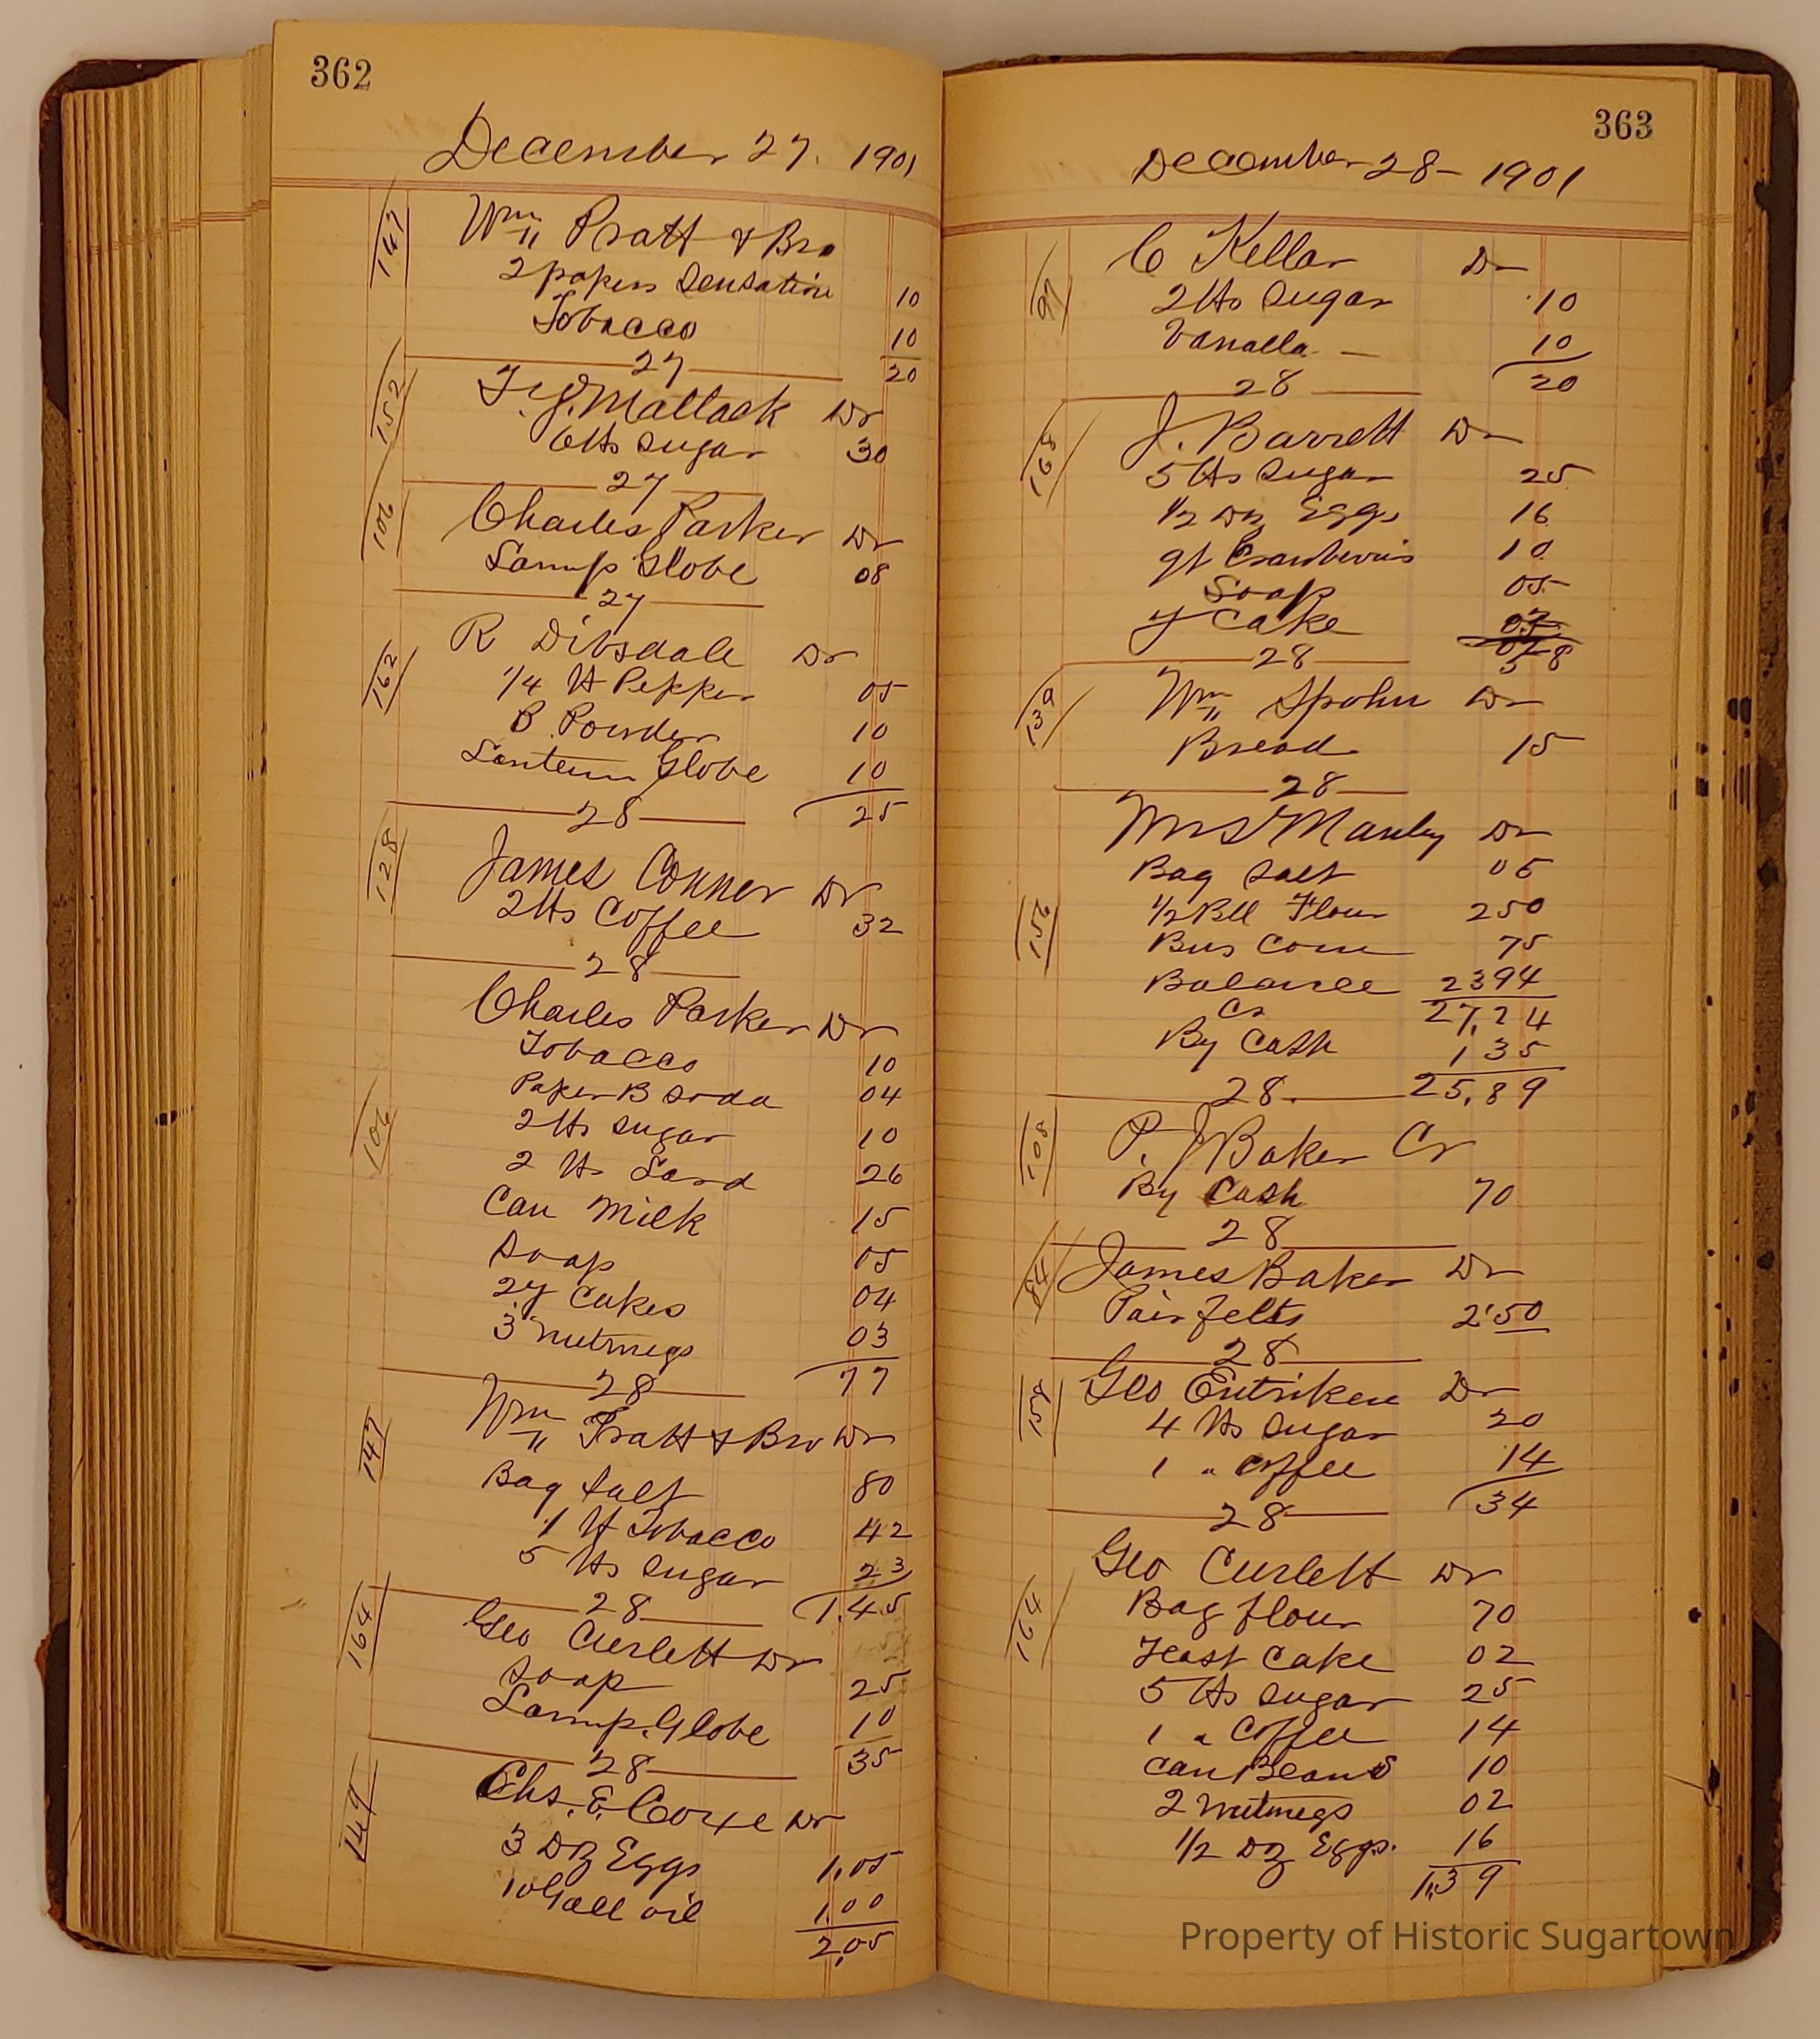 362
December 27. 1901
147
Wm Pratt & Bro
2 papers Sensation 10
Tobacco 10
27 20
152
T. J. Matlack Dr
6 lbs Sugar 30
27
106
Charles Parker Dr
Lamp Globe 08
27
162
R Dibsdale Dr
1/4 lb Pepper 05
B. Powder 10
Lantern Globe 10
28 25
128
James Conner Dr
2 lbs Coffee 32
28
Charles Parker Dr
Tobacco 10
Paper B Soda 04
106
2 lbs Sugar 10
2 lbs Lard 26
Can Milk 15
Soap 05
2 y Cakes 04
3 nutmegs 03
28 77
147
Wm Pratt & Bro Dr
Bag Salt 80
1 lb Tobacco 42
5 lbs Sugar 23
28 1.45
164
Geo Curlett Dr
Soap 25
Lamp. Globe 10
28 35
149
Chs. E. Coxe Dr
3 Dz Eggs 1,05
10 Gall oil 1.00
2,05
363
December 28- 1901
97
C Kellar Dr
2 lbs Sugar 10
Vanalla - 10
28 20
J. Barrett Dr
5 lbs Sugar 25
1/2 Dz Eggs 16
qt Cranberris 10
Soap 05
y Cake 02
28 58
139
Wm Spohn Dr
Bread 15
28
Mrs Manley Dr
Bag Salt 05
1/2 Bll Flour 250
Bus Corn 75
Balance 2394
Cr 27,24
By Cash 135
28. 25,89
108
P. J Baker Cr
By Cash 70
28
84
James Baker Dr
Pair felts 2.50
28
Geo Entriken Dr
4 lbs Sugar 20
1 " Coffee 14
28 34
164
Geo Curlett Dr
Bag flour 70
Yeast Cake 02
5 lbs Sugar 25
1 " Coffee 14
Can Beans 10
2 Nutmegs 02
1/2 Dz Eggs. 16
1,39
Property of Historic Sugartown